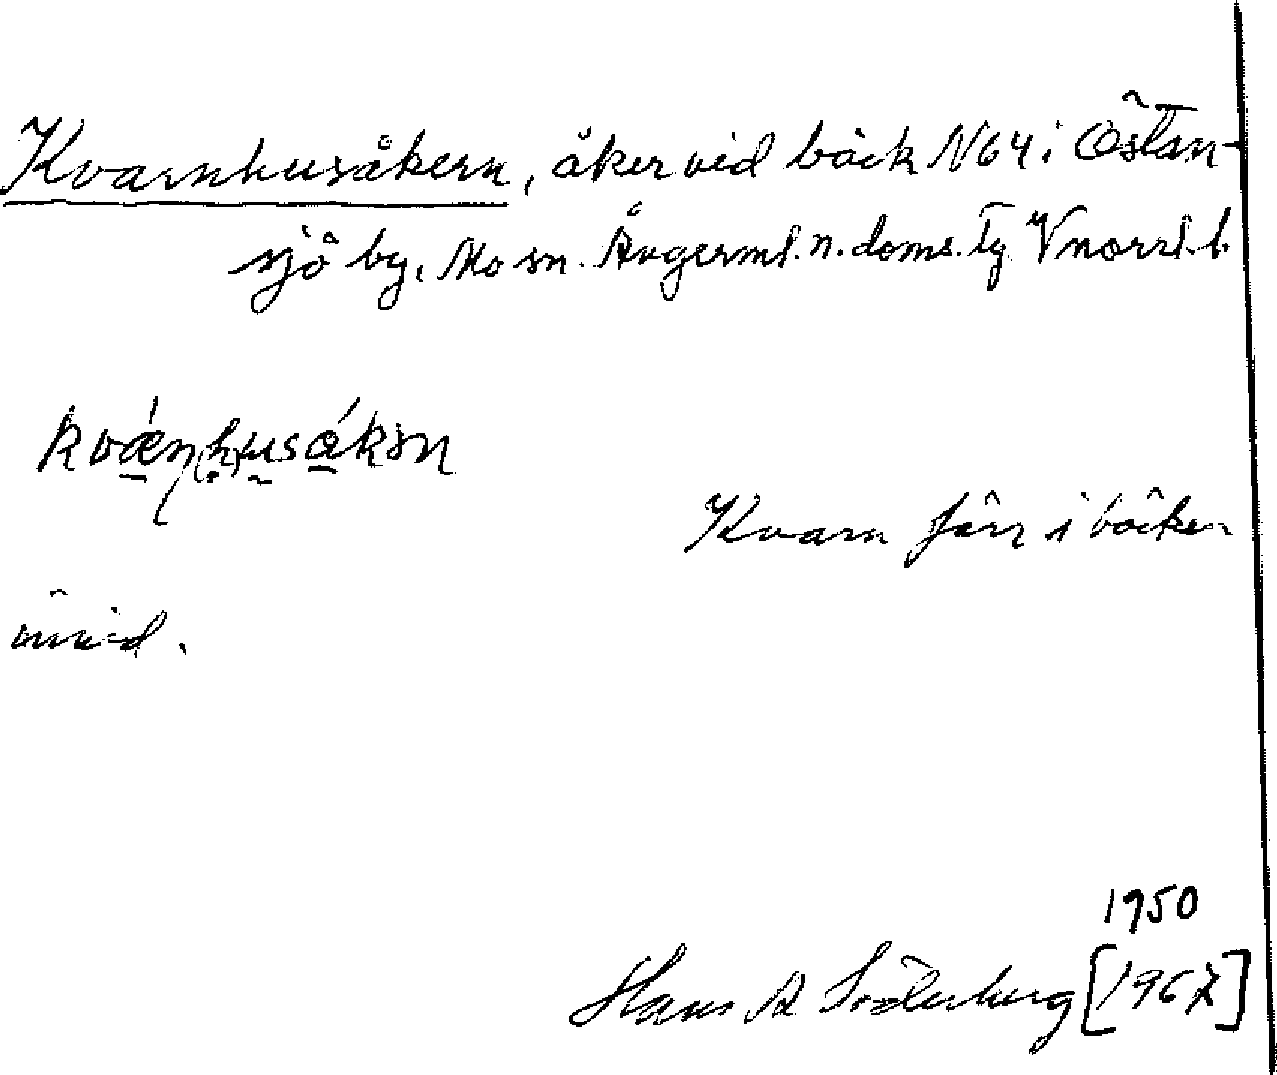 Kvarnhusåkern, åker vid bäck N64 i Östan-
sjö by, Mo sn. Ångerml. n. doms. Tg Vnorrl. l.
kvǽn(h)usákən
Kvarn förr i bäcken
invid.
1950
Hans A Söderberg [1967]